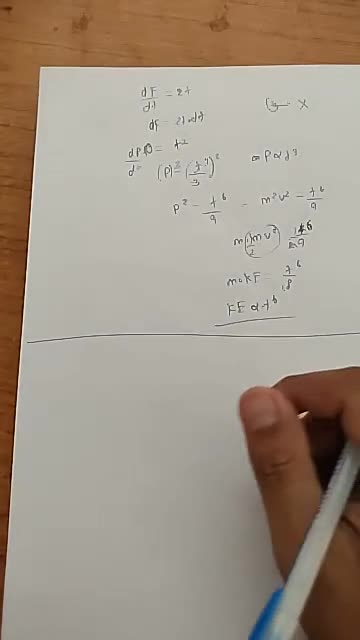 dF/dt = 2t
df = 2t·dt
dP/dt = t²
(P)² = (t³/3)² P α t³
P² = t⁶/9 m²v² = t⁶/9
m(½mv²) t⁶/2×9
m·KE = t⁶/18
KE α t⁶